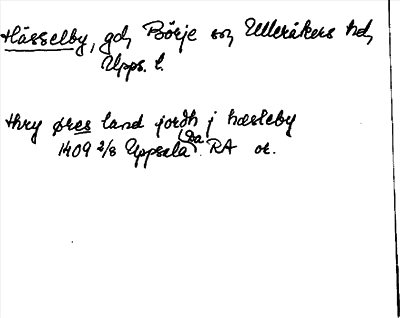 Hässelby, gd, Börje sn, Ulleråkers hd,
Upps. l.
thry øres land jordh j hæsleby
1409 2/8 Uppsala (Da). RA or.